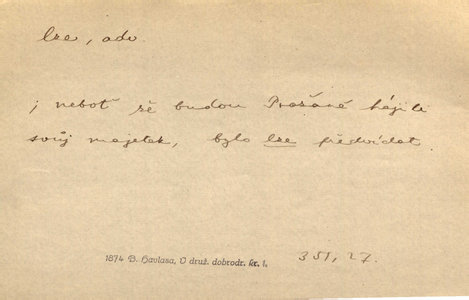 lze, adv.
; neboť že budou Pražané hájiti
svůj majetek, bylo lze předvídat.
1874 B. Havlasa, V druž. dobrodr. kr. I.
351, 27.